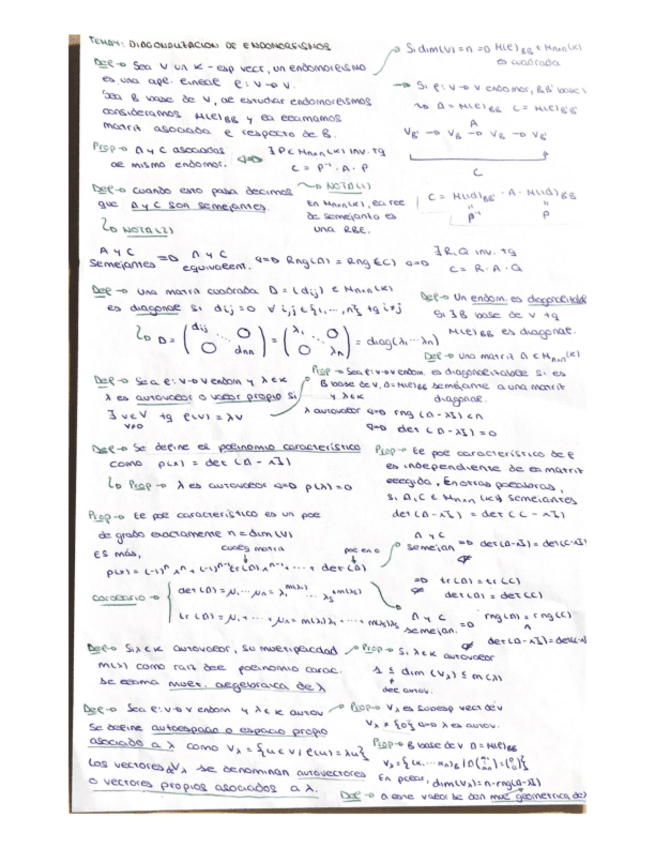 TEMA 4: DIAGONALIZACION DE ENDOMORFISMOS
Def → Sea V un K-esp vect, un endomorfismo
es una apl. lineal f: V → V.
Sea B base de V, al estudiar endomorfismos
consideramos M(f)BB y la llamamos
matriz asociada a f respecto de B.
→ Si dim(V) = n ⇒ M(f)BB ∈ Mnxn(K)
es cuadrada
→ Si f: V → V endomor, B,B' base
A = M(f)BB C = M(f)B'B'
A
VB' → VB → VB → VB'
C
Prop → A y C asociadas
al mismo endomor. ⇔ ∃ P ∈ Mnxn(K) inv. tq
C = P⁻¹ · A · P
Def → Cuando esto pasa decimos
que A y C son semejantes.
→ NOTA(1)
En Mnxn(K), la rel
de semejanto es
una RBE.
C = M(id) · A · M(id)
P⁻¹ P
↳ NOTA(2)
A y C semejantes ⇒ A y C equivalent. ⇔ Rng(A) = Rng(C) ⇔ ∃ R,Q inv. tq
C = R · A · Q
Def → Una matriz cuadrada D = (dij) ∈ Mnxn(K)
es diagonal si dij = 0 ∀ i,j ∈ {1, ..., n} tq i ≠ j
↳ D = ( dij ⋱ 0 0 dnn ) = ( λ1 ⋱ 0 0 λn ) = diag(λ1 ... λn)
Def → Un endom. es diagonalizable
si ∃ B base de V tq
M(f)BB es diagonal.
Def → Una matriz A ∈ Mnxn(K)
Prop → Sea f: V → V endom. es diagonalizable si es
B base de V, A = M(f)BB semejante a una matriz
y λ ∈ K diagonal.
Def → Sea f: V → V endom y λ ∈ K
λ es autovalor o valor propio si
∃ v ∈ V tq f(v) = λv
v≠0
λ autovalor ⇔ rng (A - λI) < n
⇔ det (A - λI) = 0
Def → Se define el polinomio característico
como p(λ) = det (A - λI)
↳ Prop → λ es autovalor ⇔ p(λ) = 0
Prop → El pol característico de f
es independiente de la matriz
escogida, En otras palabras,
si A, C ∈ Mnxn (K) semejantes
det (A - λI) = det (C - λI)
Prop → El pol característico es un pol
de grado exactamente n = dim (V)
Es más,
p(λ) = (-1)ⁿ λⁿ + (-1)ⁿ⁻¹ tr(A) λⁿ⁻¹ + ... + det(A)
A y C
semejan ⇒ det (A-λI) = det(C-λI)
⇒ tr(A) = tr(C)
det(A) = det(C)
Corolario →
det(A) = μ1 ... μn = λ1^m(λ1) ... λs^m(λs)
tr(A) = μ1 + ... + μn = m(λ1)λ1 + ... + m(λs)λs
A y C
semejan. ⇒ rng(A) = rng(C)
∧
det(A-λI) = det(C-λI)
Def → Si λ ∈ K autovalor, su multiplicidad
m(λ) como raíz del polinomio carac.
se llama mult. algebraica de λ
Prop → Si λ ∈ K autovalor
1 ≤ dim (Vλ) ≤ m(λ)
Def → Sea f: V → V endom y λ ∈ K autov
se define autoespacio o espacio propio
asociado a λ como Vλ = {u ∈ V / f(u) = λu}
Los vectores de Vλ se denominan autovectores
o vectores propios asociados a λ.
Prop → Vλ es subesp vect de V
Vλ ≠ {0} ⇔ λ es autov.
Prop → B base de V A = M(f)BB
En plear, dim(Vλ) = n - rng(A-λI)
Def → A este valor se den mult geométrica de